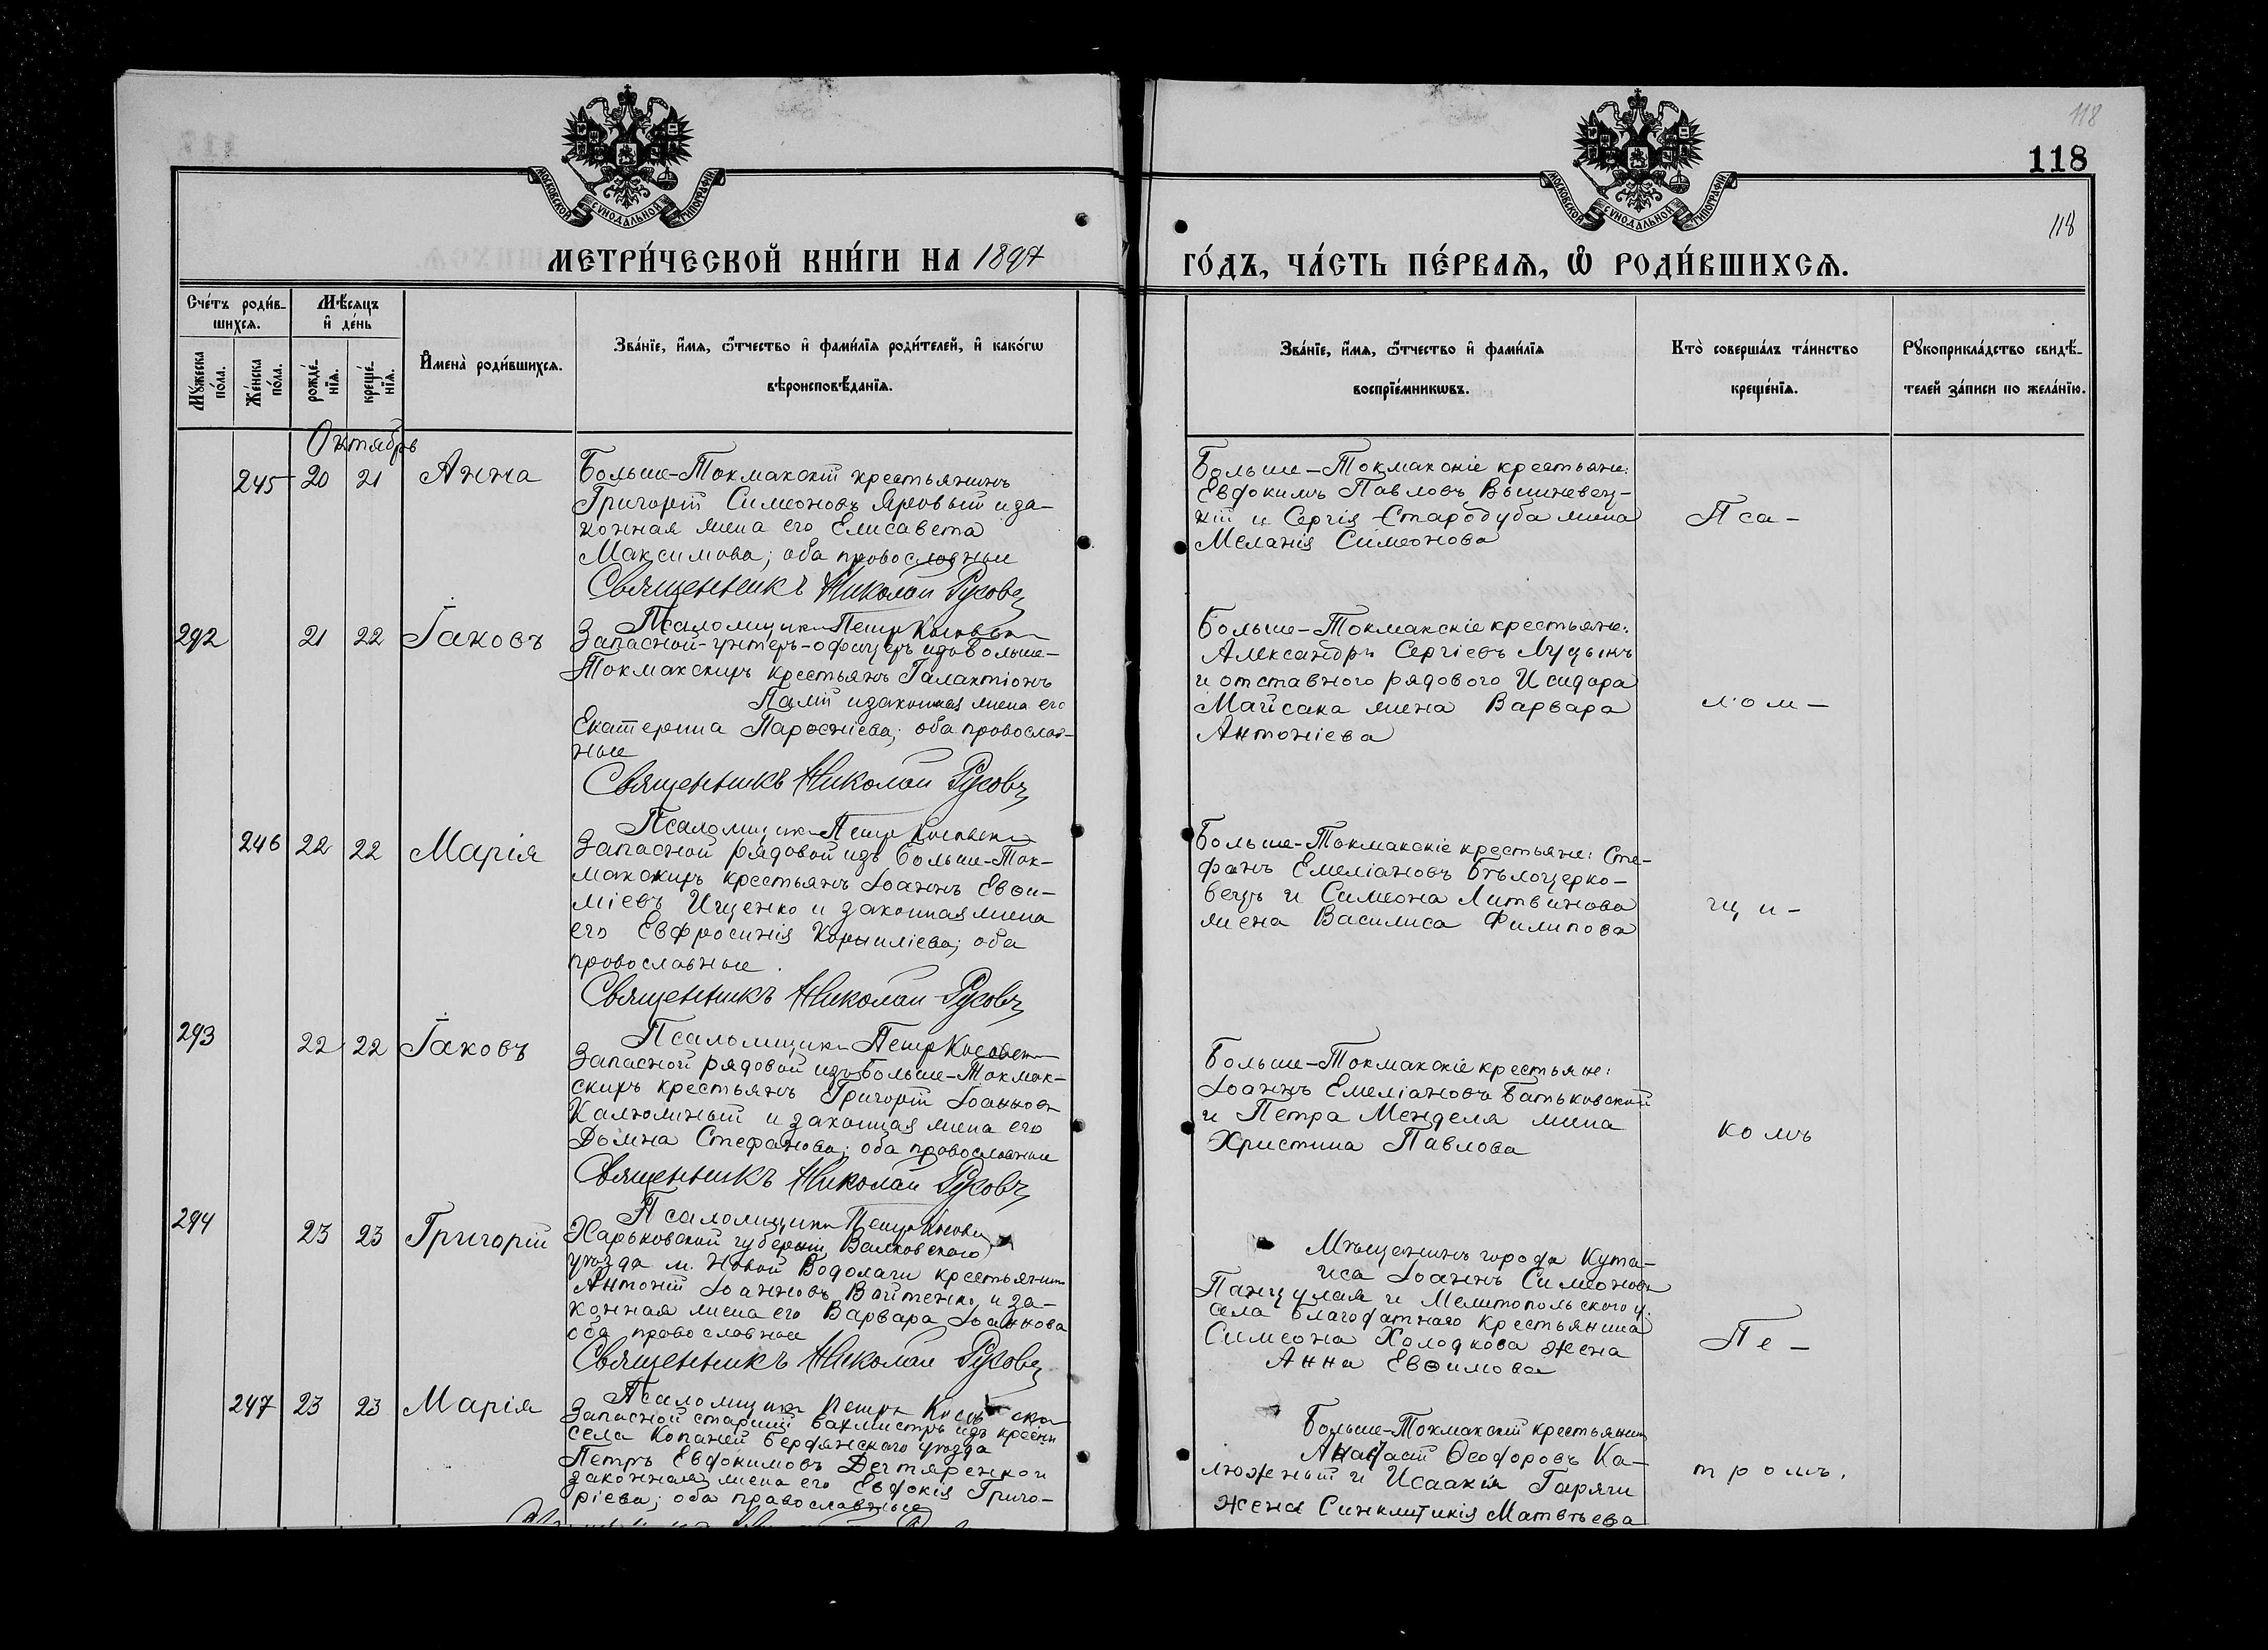 118
118
118
МОСКОВСКОЙ СѴНОДАЛЬНОЙ ТИПОГРАФІИ
МОСКОВСКОЙ СѴНОДАЛЬНОЙ ТИПОГРАФІИ
МЕТРИ́ЧЕСКОЙ КНИ́ГИ НА 1897
ГО́ДЪ, ЧА́СТЬ ПЕ́РВАѦ, Ѽ РОДИ́ВШИХСѦ.
Сче́тъ роди́в-
шихсѧ.
Мѣ́сѧцъ
и҆ де́нь
Мꙋ́жеска
по́ла.
Же́нска
по́ла.
рожде́-
нїѧ.
креще́-
нїѧ.
И҆мена̀ роди́вшихсѧ.
Зва́нїе, и҆́мѧ, ѻ҆́тчество и҆ фами́лїѧ роди́телей, и҆ како́гѡ
вѣроисповѣ́данїѧ.
Зва́нїе, и҆́мѧ, ѻ҆́тчество и҆ фами́лїѧ
воспрїе́мникѡвъ.
Кто̀ соверша́лъ та́инство
креще́нїѧ.
Рꙋкоприкла́дство свидѣ́-
телей за́писи по жела́нїю.
Октябрь
245 20 21 Анна
Больше-Токмакскій крестьянинъ
Григорій Симеоновъ Яровый и за-
конная жена его Елисавета
Максимова; оба православные
Священникъ Николай Русовъ
Псаломщикъ Петръ
Больше-Токмакскіе крестьяне:
Евдокимъ Павловъ Вишневец-
кій и Сергія Стародуба жена
Меланія Симеонова
Пса-
292 21 22 Іаковъ
Запасной-унтеръ-офицеръ изъ Больше-
Токмакскихъ крестьянъ Галактіонъ
Палій и законная жена его
Екатерина Парѳеніева; оба православ-
ные
Священникъ Николай Русовъ
Псаломщикъ Петръ
Больше-Токмакскіе крестьяне:
Александръ Сергіевъ Луцынъ
и отставного рядового Исидора
Майсака жена Варвара
Антоніева
лом-
246 22 22 Марія
Запасной рядовой изъ Больше-Ток-
макскихъ крестьянъ Іоаннъ Евѳи-
міевъ Ищенко и законная жена
его Евфросинія Корниліева; оба
православные.
Священникъ Николай Русовъ
Псаломщикъ Петръ
Больше-Токмакскіе крестьяне: Сте-
фанъ Емеліановъ Бѣлоцерко-
вецъ и Симеона Литвинова
жена Василиса Филипова
щи-
293 22 22 Іаковъ
Запасной рядовой изъ Больше-Токмак-
скихъ крестьянъ Григорій Іоанновъ
Калюжный и законная жена его
Домна Стефанова; оба православные
Священникъ Николай Русовъ
Псаломщикъ Петръ
Больше-Токмакскіе крестьяне:
Іоаннъ Емеліановъ Батьковский
и Петра Менделя жена
Христина Павлова
комъ
294 23 23 Григорій
Харьковской губерніи, Валковского
уѣзда м. Новой Водолаги крестьянинъ
Антоній Іоанновъ Войтенко и за-
конная жена его Варвара Іоаннова
оба православные
Священникъ Николай Русовъ
Псаломщикъ Петръ
Мѣщанинъ города Кута-
иса Іоаннъ Симеоновъ
Панцулая и Мелитопольского у.
села Благодатнаго крестьянина
Симеона Холодкова жена
Анна Евѳимова
Пе-
247 23 23 Марія
Запасной старшій вахмистръ изъ крестьянъ
села Копаней Бердянского уѣзда
Петръ Евдокимовъ Дегтяренко и
законная жена его Евдокія Григо-
ріева; оба православные
Больше-Токмакскій крестьянинъ
Ѳеодоровъ Ка-
люжный и Исаакія Гаряги
жена Синклитикія Матвѣева
тромъ.